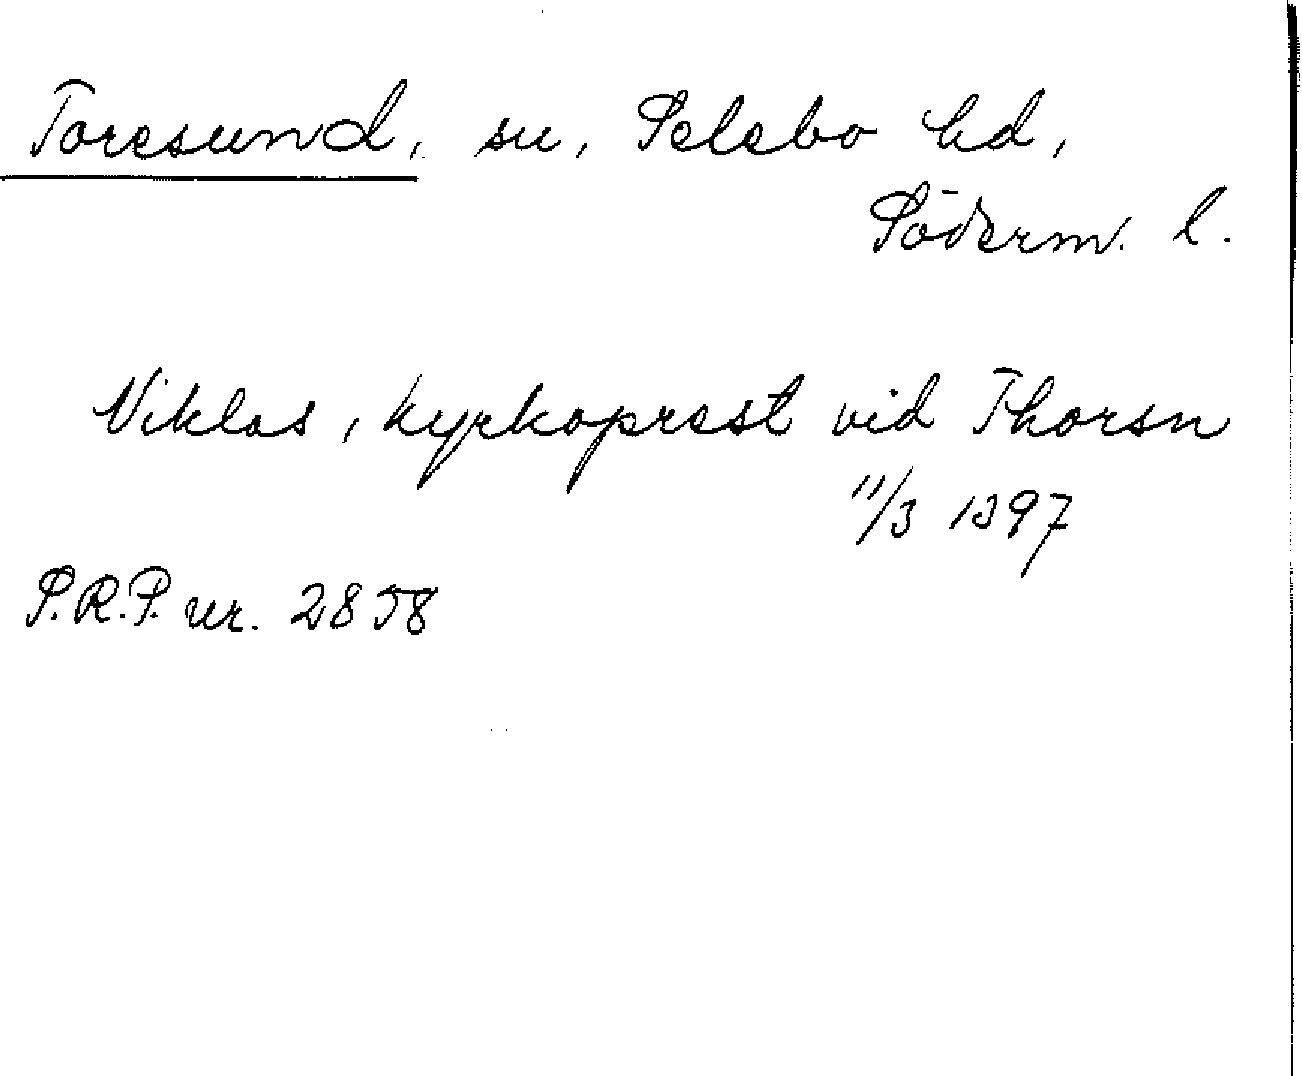 Toresund, sn, Selebo hd,
Söderm. l.
Niklas, kyrkoprest vid Thorsn
11/3 1397
S.R.P. nr. 2858